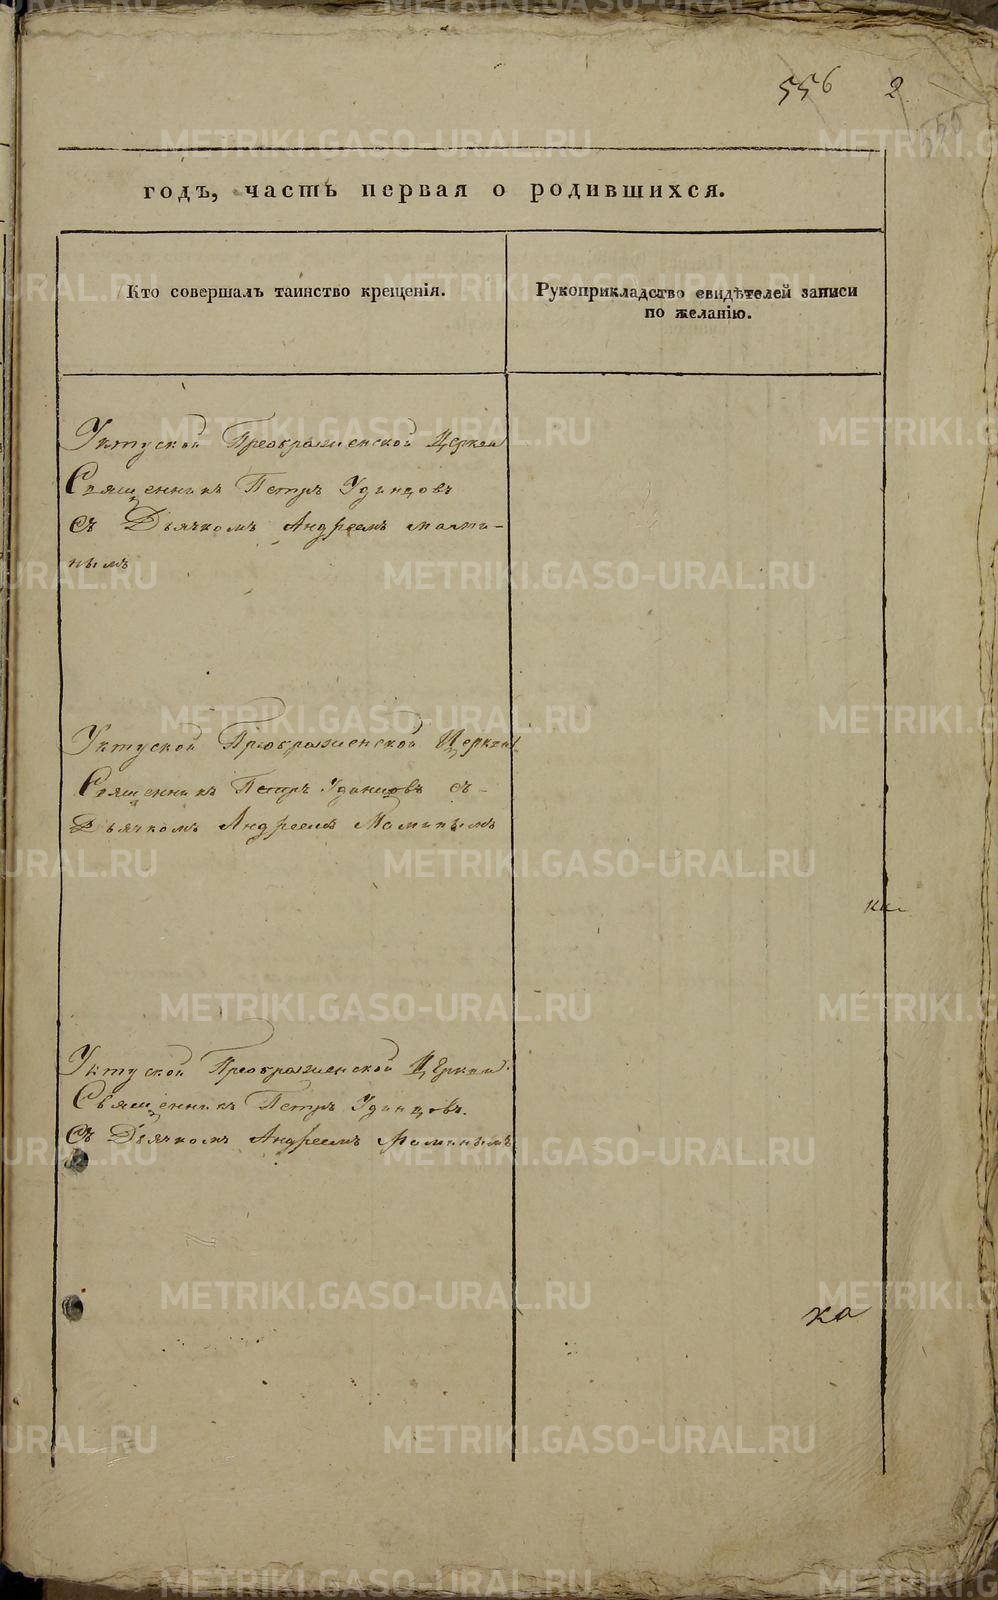 556 2
555
годъ, часть первая о родившихся.
Кто совершалъ таинство крещенія.
Рукоприкладство свидѣтелей записи
по желанію.
Уктуской Преображенской Церкви
Священникъ Петръ Удинцовъ
съ Дьячкомъ Андреемъ Мами-
нымъ
Уктуской Преображенской Церкви
Священникъ Петръ Удинцовъ съ
Дьячкомъ Андреемъ Маминымъ
Уктуской Преображенской Церкви
Священникъ Петръ Удинцовъ.
Съ Дьячкомъ Андреемъ Маминымъ
ка
METRIKI.GASO-URAL.RU